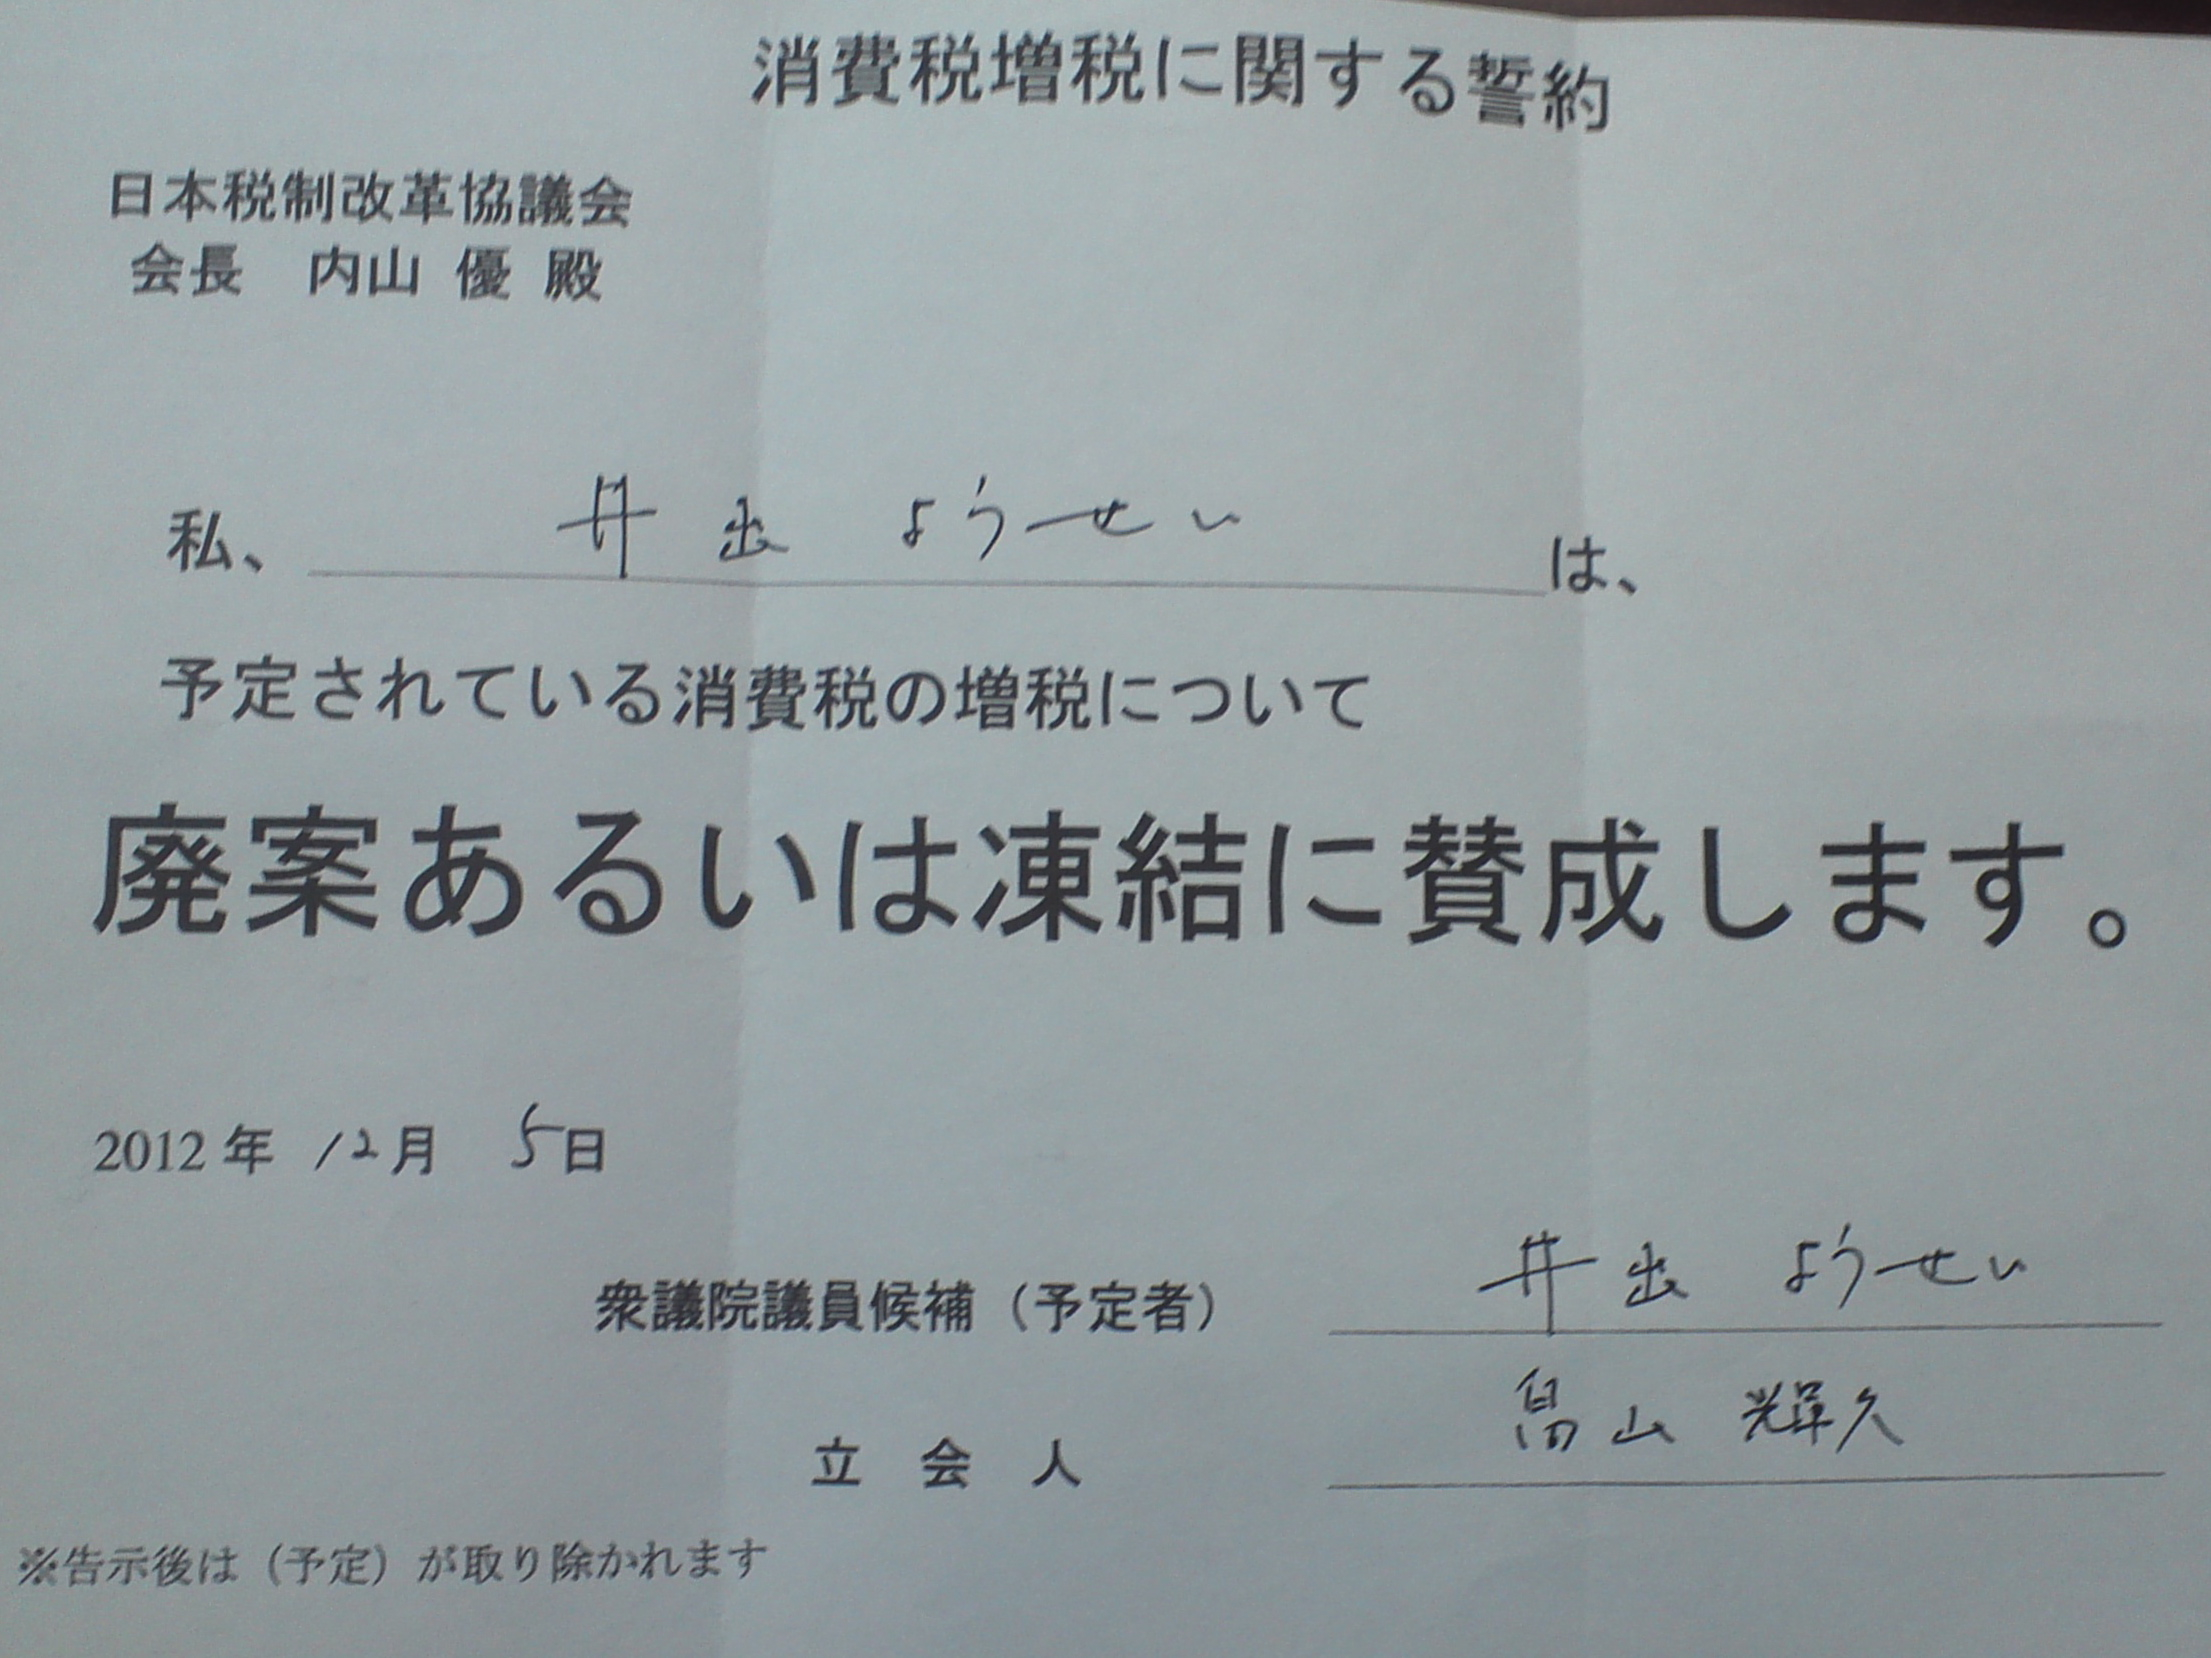 消費税増税に関する誓約
日本税制改革協議会
会長　内山 優 殿
私、井出 ようせい は、
予定されている消費税の増税について
廃案あるいは凍結に賛成します。
2012年 12月 5日
衆議院議員候補（予定者） 井出 ようせい
立 会 人 畠山 輝久
※告示後は（予定）が取り除かれます